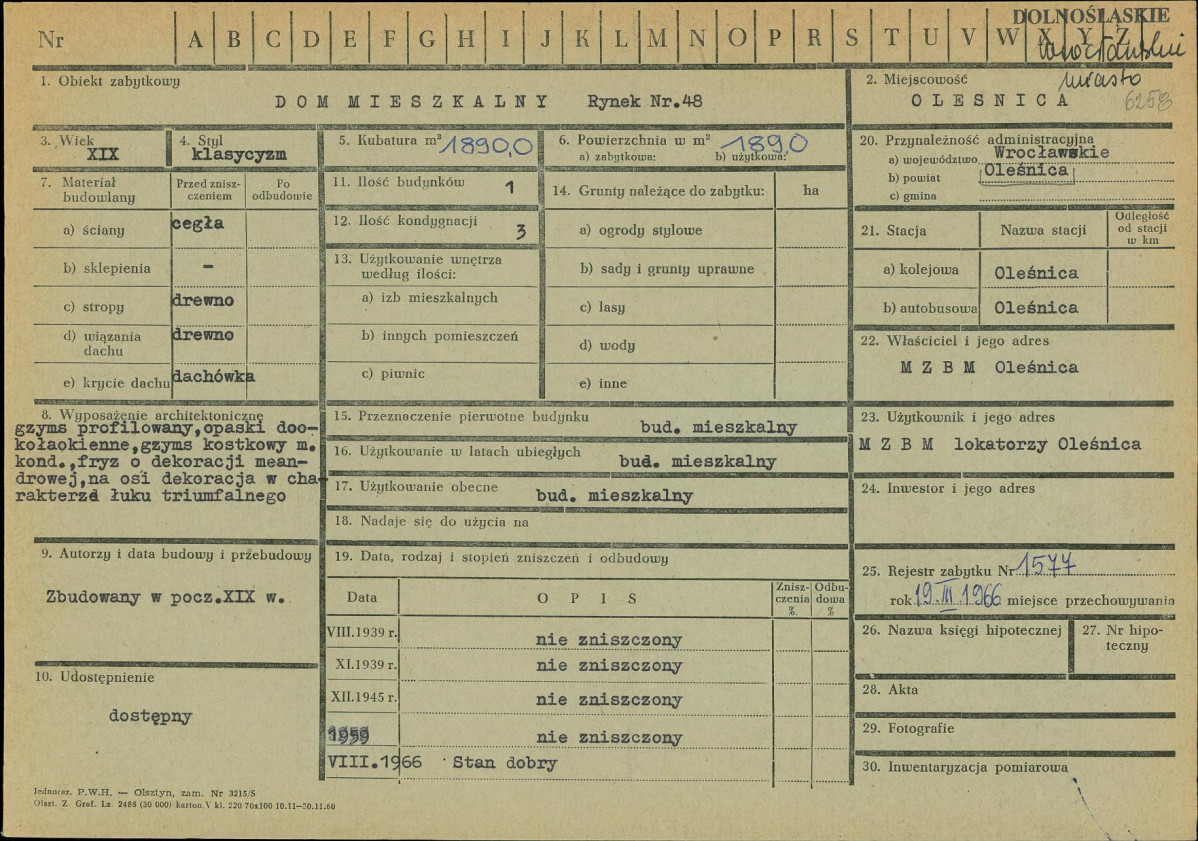 DOLNOŚLĄSKIE
Nr A B C D E F G H I J K L M N O P R S T U V W X Y Z
wrocławski
miasto
6258
1. Obiekt zabytkowy
DOM MIESZKALNY Rynek Nr.48
2. Miejscowość
OLESNICA
3. Wiek
XIX
4. Styl
klasycyzm
5. Kubatura m³ 1890,0
6. Powierzchnia w m² 189,0
a) zabytkowa: b) użytkowa:
7. Materiał budowlany
Przed zniszczeniem
Po odbudowie
a) ściany cegła
b) sklepienia –
c) stropy drewno
d) wiązania dachu drewno
e) krycie dachu dachówka
8. Wyposażenie architektoniczne
gzyms profilowany,opaski doo-
kołaokienne,gzyms kostkowy m.
kond.,fryz o dekoracji mean-
drowej,na osi dekoracja w cha-
rakterze łuku triumfalnego
9. Autorzy i data budowy i przebudowy
Zbudowany w pocz.XIX w.
10. Udostępnienie
dostępny
11. Ilość budynków 1
12. Ilość kondygnacji 3
13. Użytkowanie wnętrza
według ilości:
a) izb mieszkalnych
b) innych pomieszczeń
c) piwnic
14. Grunty należące do zabytku: ha
a) ogrody stylowe
b) sady i grunty uprawne
c) lasy
d) wody
e) inne
15. Przeznaczenie pierwotne budynku
bud. mieszkalny
16. Użytkowanie w latach ubiegłych
bud. mieszkalny
17. Użytkowanie obecne
bud. mieszkalny
18. Nadaje się do użycia na
19. Data, rodzaj i stopień zniszczeń i odbudowy
Data OPIS Znisz-czenia % Odbu-dowa %
VIII.1939 r. nie zniszczony
XI.1939 r. nie zniszczony
XII.1945 r. nie zniszczony
1959 nie zniszczony
VIII.1966 Stan dobry
20. Przynależność administracyjna
a) województwo Wrocławskie
b) powiat Oleśnica
c) gmina
21. Stacja Nazwa stacji Odległość od stacji w km
a) kolejowa Oleśnica
b) autobusowa Oleśnica
22. Właściciel i jego adres
M Z B M Oleśnica
23. Użytkownik i jego adres
M Z B M lokatorzy Oleśnica
24. Inwestor i jego adres
25. Rejestr zabytku Nr 1577
rok 19.III.1966 miejsce przechowywania
26. Nazwa księgi hipotecznej
27. Nr hipo-
teczny
28. Akta
29. Fotografie
30. Inwentaryzacja pomiarowa
Jednoraz. P.W.H. — Olsztyn, zam. Nr 3215/S
Olszt. Z. Graf. Lz. 2486 (30 000) karton V kl. 220 70x100 10.11—30.11.60